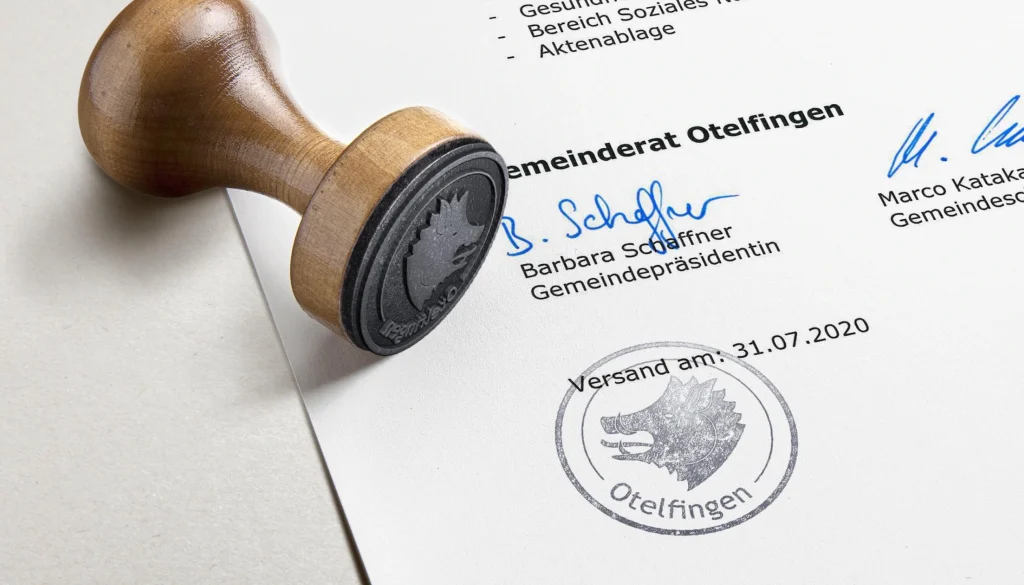 - Gesundh
- Bereich Soziales
- Aktenablage
emeinderat Otelfingen
B. Schaffner
Barbara Schaffner
Gemeindepräsidentin
M.
Marco Kataka
Gemeindesc
Versand am: 31.07.2020
Otelfingen